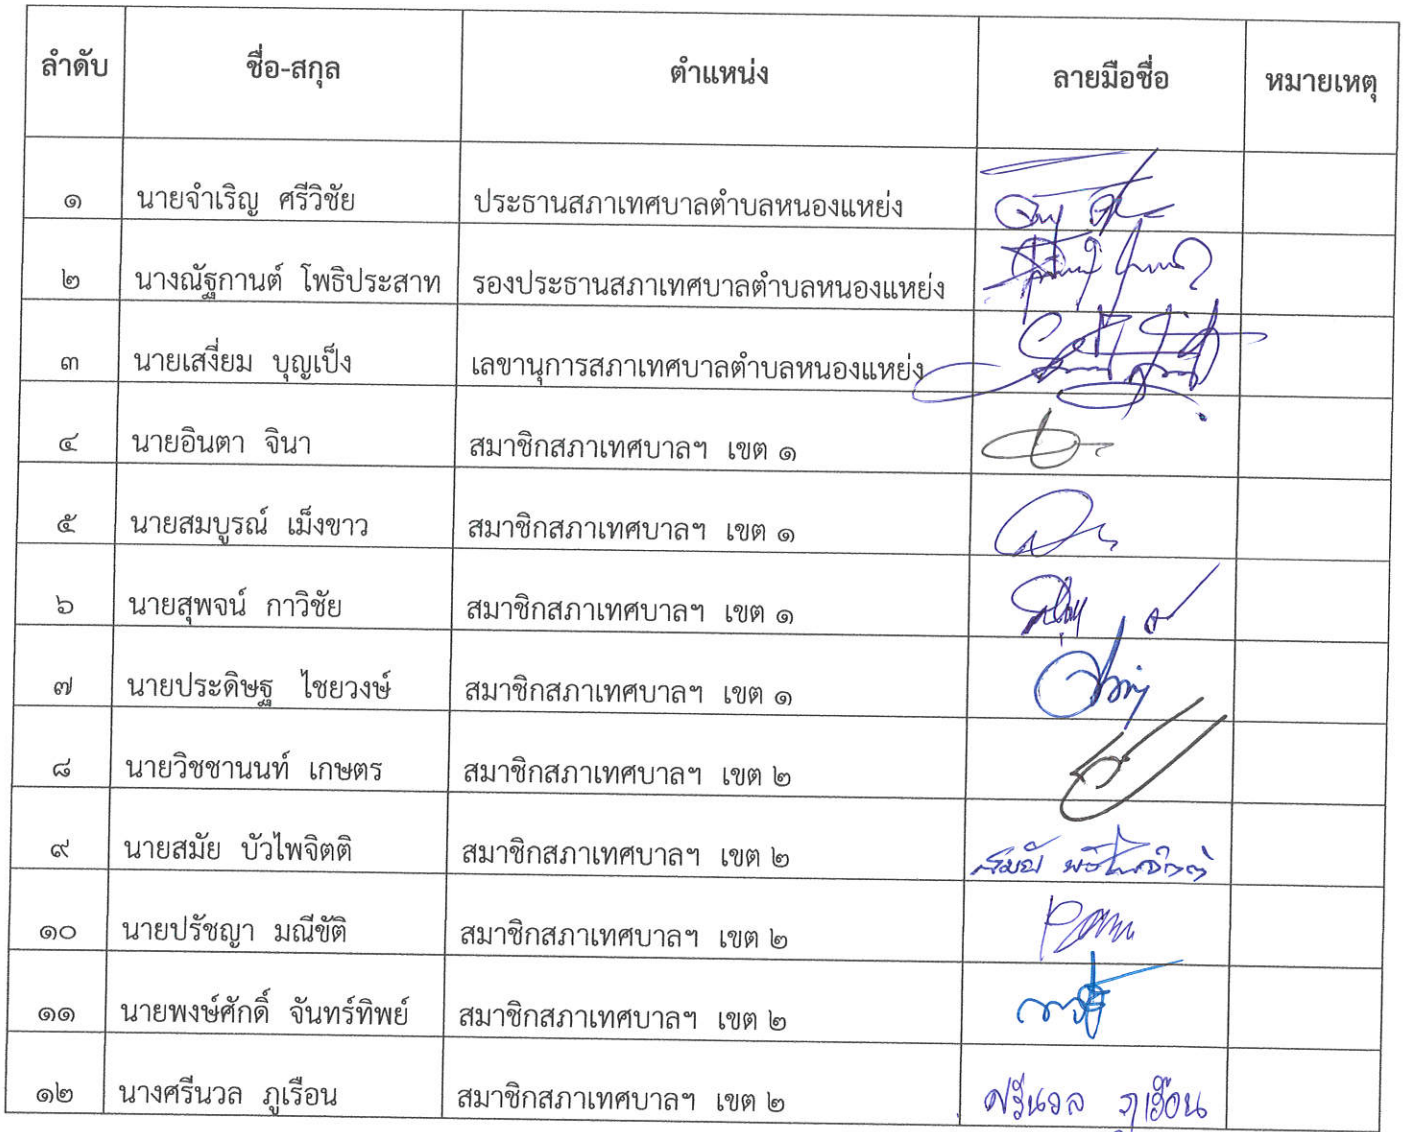 ลำดับ ชื่อ-สกุล ตำแหน่ง ลายมือชื่อ หมายเหตุ
๑ นายจำเริญ ศรีวิชัย ประธานสภาเทศบาลตำบลหนองแหย่ง
๒ นางณัฐกานต์ โพธิประสาท รองประธานสภาเทศบาลตำบลหนองแหย่ง
๓ นายเสงี่ยม บุญเป็ง เลขานุการสภาเทศบาลตำบลหนองแหย่ง
๔ นายอินตา จินา สมาชิกสภาเทศบาลฯ เขต ๑
๕ นายสมบูรณ์ เม็งขาว สมาชิกสภาเทศบาลฯ เขต ๑
๖ นายสุพจน์ กาวิชัย สมาชิกสภาเทศบาลฯ เขต ๑
๗ นายประดิษฐ ไชยวงษ์ สมาชิกสภาเทศบาลฯ เขต ๑
๘ นายวิชชานนท์ เกษตร สมาชิกสภาเทศบาลฯ เขต ๒
๙ นายสมัย บัวไพจิตติ สมาชิกสภาเทศบาลฯ เขต ๒
๑๐ นายปรัชญา มณีขัติ สมาชิกสภาเทศบาลฯ เขต ๒
๑๑ นายพงษ์ศักดิ์ จันทร์ทิพย์ สมาชิกสภาเทศบาลฯ เขต ๒
๑๒ นางศรีนวล ภูเรือน สมาชิกสภาเทศบาลฯ เขต ๒ ศรีนวล ภูเรือน